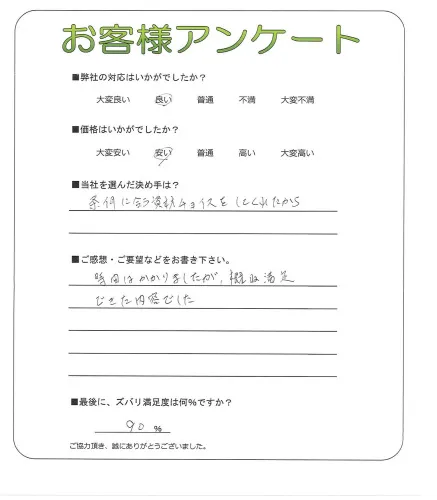 お客様アンケート
■弊社の対応はいかがでしたか？
大変良い 良い 普通 不満 大変不満
■価格はいかがでしたか？
大変安い 安い 普通 高い 大変高い
■当社を選んだ決め手は？
条件に合う資材チョイスをしてくれたから
■ご感想・ご要望などをお書き下さい。
時間はかかりましたが、概ね満足
できた内容でした
■最後に、ズバリ満足度は何%ですか？
90 %
ご協力頂き、誠にありがとうございました。